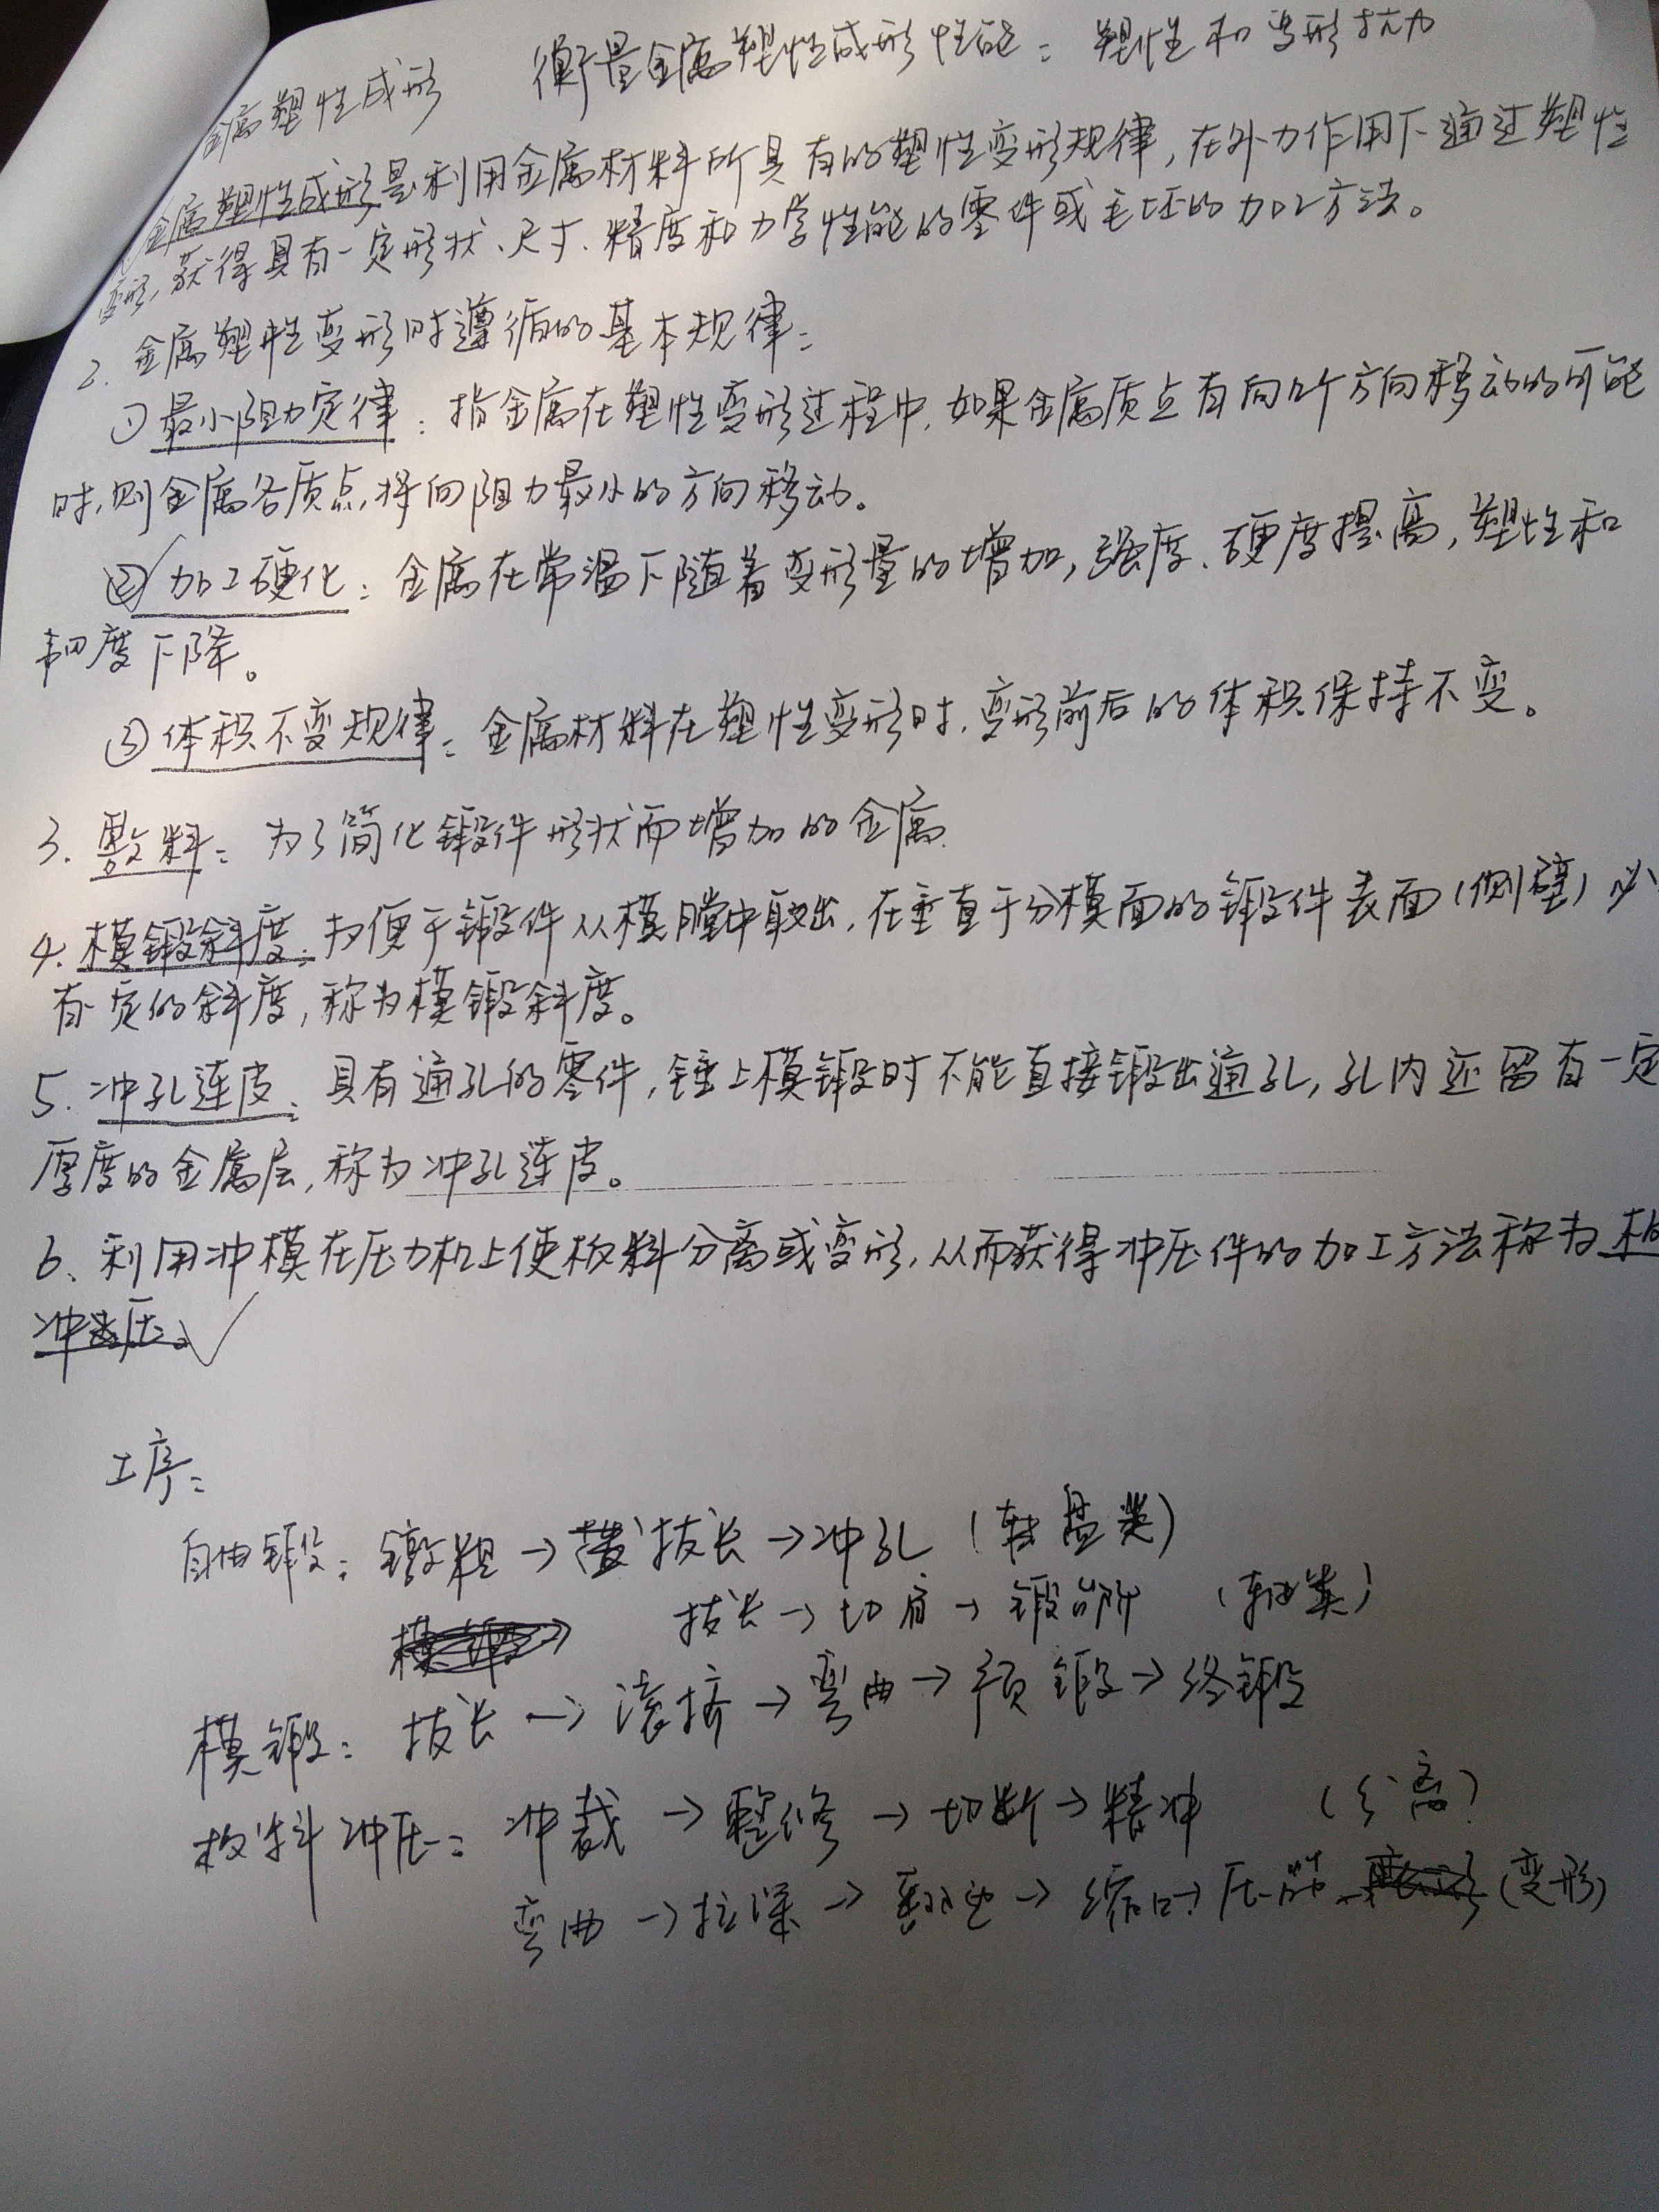 金属塑性成形 衡量金属塑性成形性能：塑性和变形抗力
金属塑性成形是利用金属材料所具有的塑性变形规律，在外力作用下通过塑性
变形，获得具有一定形状、尺寸、精度和力学性能的零件或毛坯的加工方法。
2. 金属塑性变形时遵循的基本规律：
①最小阻力定律：指金属在塑性变形过程中，如果金属质点有向几个方向移动的可能
时，则金属各质点，将向阻力最小的方向移动。
②加工硬化：金属在常温下随着变形量的增加，强度、硬度提高，塑性和
韧度下降。
③体积不变规律：金属材料在塑性变形时，变形前后的体积保持不变。
3. 敷料：为了简化锻件形状而增加的金属
4. 模锻斜度：为便于锻件从模膛中取出，在垂直于分模面的锻件表面（侧壁）必
有一定的斜度，称为模锻斜度。
5. 冲孔连皮：具有通孔的零件，锤上模锻时不能直接锻出通孔，孔内还留有一定
厚度的金属层，称为冲孔连皮。
6、利用冲模在压力机上使板料分离或变形，从而获得冲压件的加工方法称为板
冲压。✓
工序：
自由锻：镦粗→拔长→冲孔（盘类）
拔长→切肩→锻台阶（轴类）
模锻：拔长→滚挤→弯曲→预锻→终锻
板料冲压：冲裁→整修→切断→精冲（分离）
弯曲→拉深→翻边→缩口→压筋（变形）